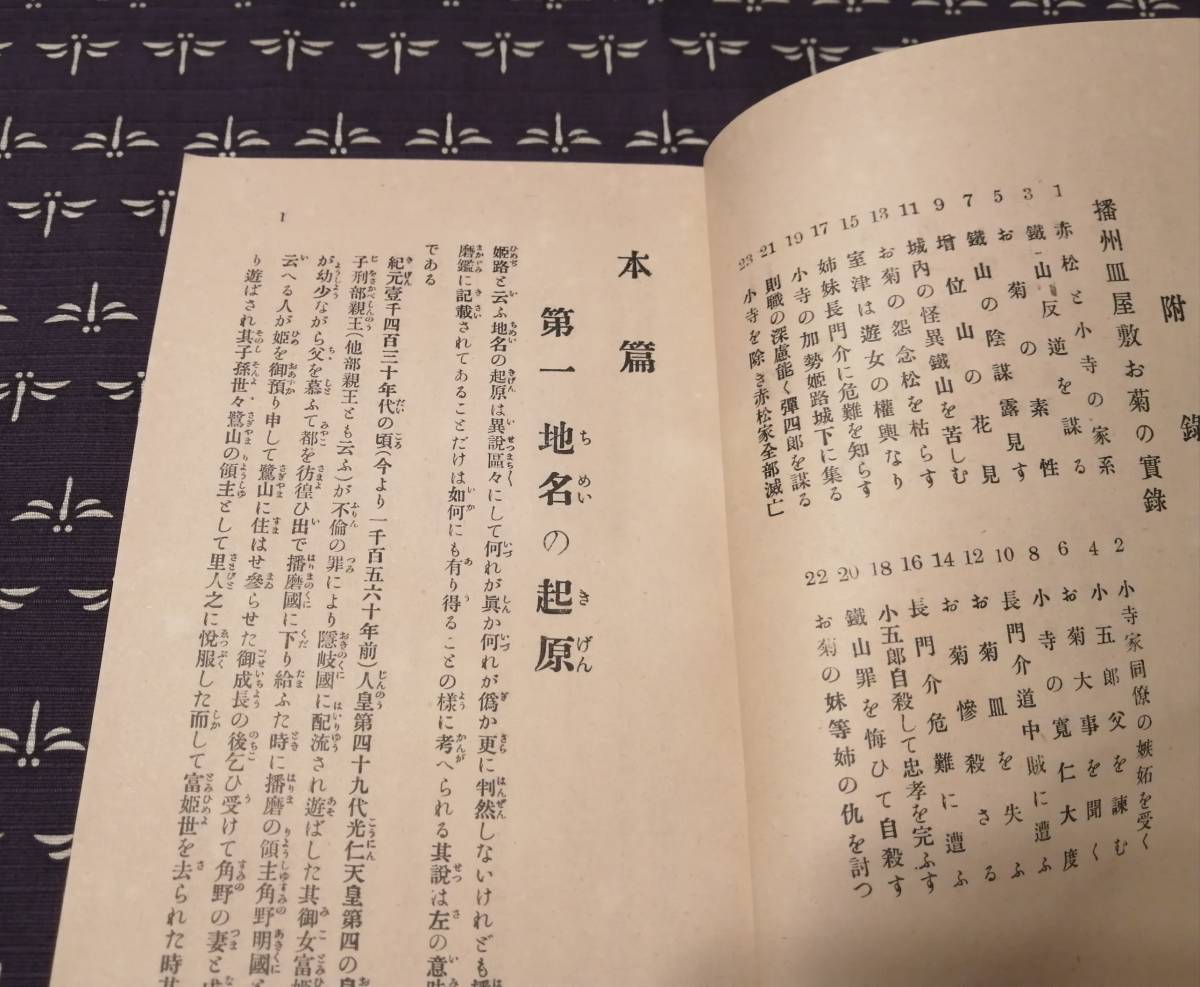 附錄
播州皿屋敷お菊の實錄
1 赤松と小寺の家系
2 小寺家同僚の嫉妬を受く
3 鐵山反逆を謀る
4 小五郎父を諫む
5 お菊の素性
6 お菊大事を聞く
7 鐵山の陰謀露見す
8 小寺の寬仁大度
9 增位山の花見
10 長門介道中賊に遭ふ
11 城內の怪異鐵山を苦しむ
12 お菊皿を失ふ
13 お菊の怨念松を枯らす
14 お菊慘殺さる
15 室津は遊女の權輿なり
16 長門介危難に遭ふ
17 姉妹長門介に危難を知らす
18 小五郎自殺して忠孝を完ふす
19 小寺の加勢姬路城下に集る
20 鐵山罪を悔ひて自殺す
21 則職の深慮能く彈四郎を謀る
22 お菊の妹等姉の仇を討つ
23 小寺を除き赤松家全部滅亡
本篇
第一 地名の起原
姬路と云ふ地名の起原は異說區々にして何れが眞か何れが僞か更に判然しないけれども播
磨鑑に記載されてあることだけは如何にも有り得ることの樣に考へられる其說は左の意味
である
紀元壹千四百三十年代の頃(今より一千百五六十年前)人皇第四十九代光仁天皇第四の皇
子刑部親王(他部親王とも云ふ)が不倫の罪により隱岐國に配流され遊ばした其御女富姬
が幼少ながら父を慕ふて都を彷徨ひ出で播磨國に下り給ふた時に播磨の領主角野明國と
云へる人が姬を御預り申して鷺山に住はせ參らせた御成長の後乞ひ受けて角野の妻と
り遊ばされ其子孫世々鷺山の領主として里人之に悅服した而して富姬世を去られた時
1